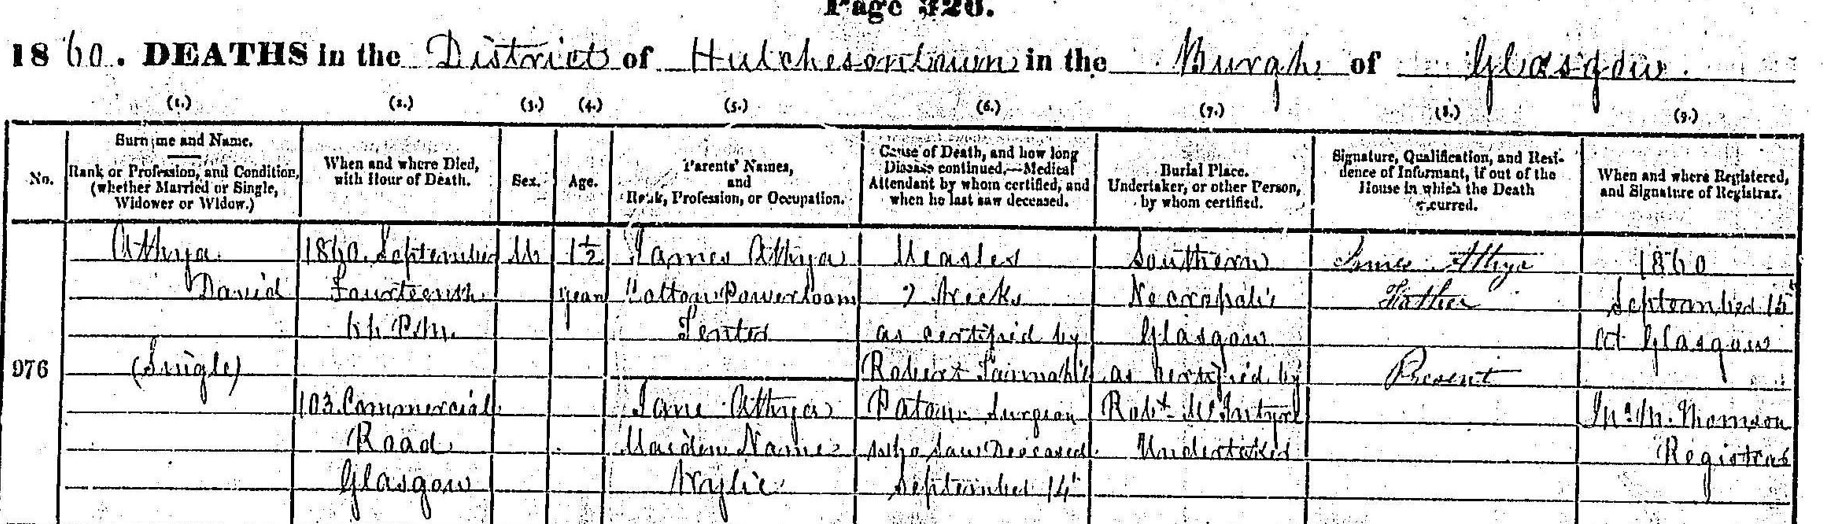 Page 326.
1860. DEATHS in the District of Hutchesontown in the Burgh of Glasgow.
(1.) (2.) (3.) (4.) (5.) (6.) (7.) (8.) (9.)
No.
Surname and Name.
Rank or Profession, and Condition,
(whether Married or Single,
Widower or Widow.)
When and where Died,
with Hour of Death.
Sex.
Age.
Parents' Names,
and
Rank, Profession, or Occupation.
Cause of Death, and how long
Disease continued,—Medical
Attendant by whom certified, and
when he last saw deceased.
Burial Place.
Undertaker, or other Person,
by whom certified.
Signature, Qualification, and Resi-
dence of Informant, if out of the
House in which the Death
occurred.
When and where Registered,
and Signature of Registrar.
976
Athya
David
(Single)
1860. September
Fourteenth
P.M.
103 Commercial
Road
Glasgow
M
1½
year
James Athya
Cotton Powerloom
Tenter
Jane Athya
Maiden Name
Wylie
Measles
2 Weeks
as certified by
Robert Tannahill
Paton Surgeon
who saw Deceased
September 14th
Southern
Necropolis
Glasgow
as certified by
Robt McIntyre
Undertaker
James Athya
Father
Present
1860
September 15th
At Glasgow
Thomson
Registrar